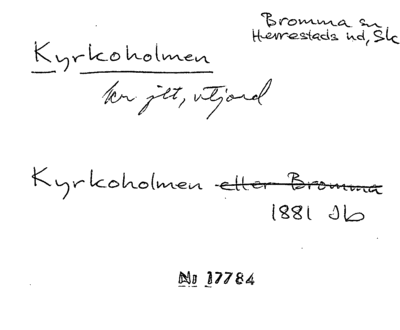 Bromma sn
Herrestads hd, Sk
Kyrkoholmen
kr jlt, utjord
Kyrkoholmen efter Bromma
1881 Jb
Nr 17784